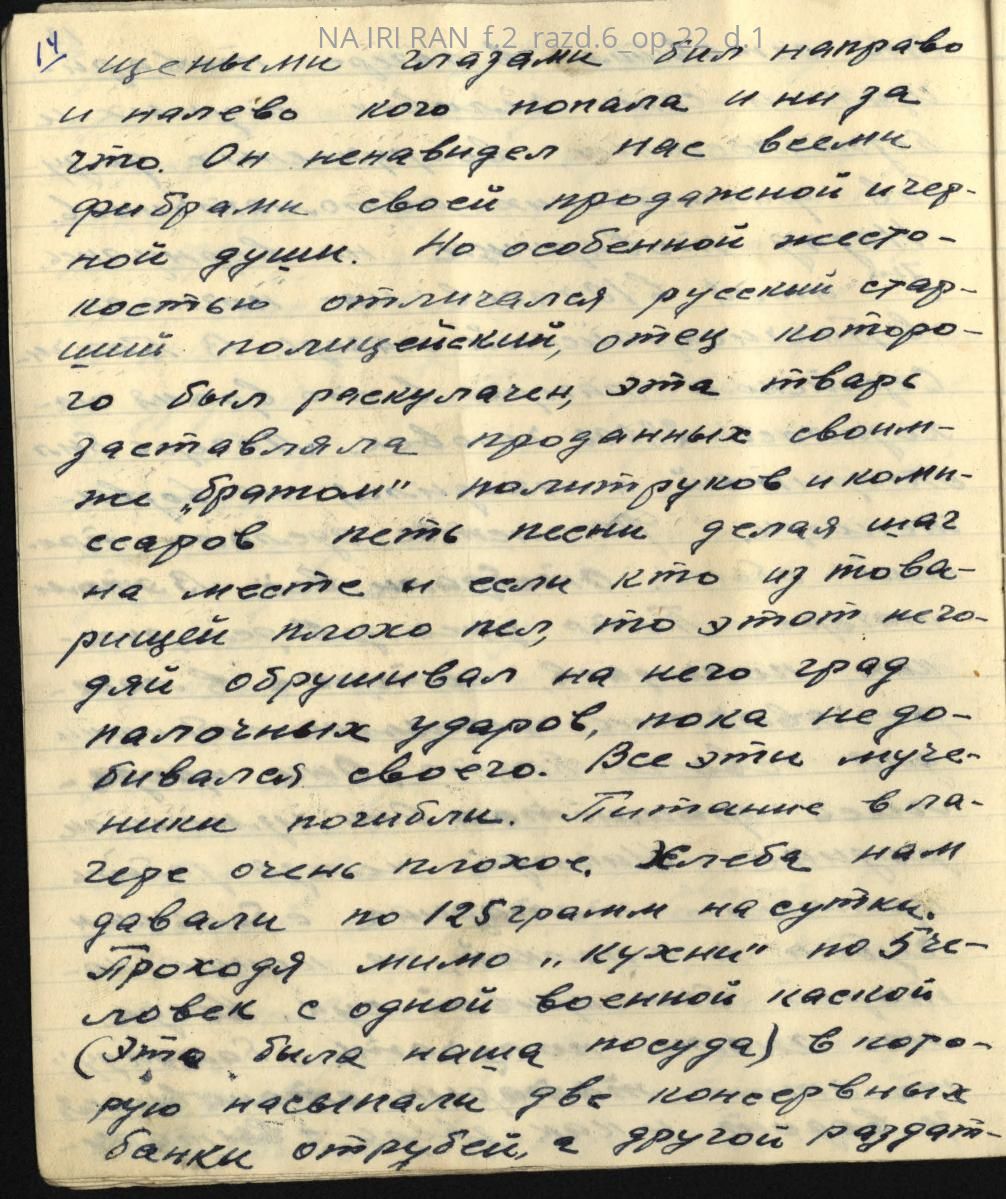 NA IRI RAN_f.2_razd.6_op.22_d.1
14
щеными глазами бил направо
и налево кого попала и ни за
что. Он ненавидел нас всеми
фибрами своей продажной и чер-
ной души. Но особенной жесто-
костью отличался русский стар-
ший полицейский, отец которо-
го был раскулачен, эта тварь
заставляла проданных своим-
же „братом" политруков и коми-
ссаров петь песни делая шаг
на месте и если кто из това-
рищей плохо пел, то этот него-
дяй обрушивал на него град
палочных ударов, пока не до-
бивался своего. Все эти муче-
ники погибли. Питание в ла-
гере очень плохое. Хлеба нам
давали по 125 грамм на сутки.
Проходя мимо „кухни" по 5 че-
ловек с одной военной каской
(Эта была наша посуда) в кото-
рую насыпали две консервных
банки отрубей, а другой раздат-